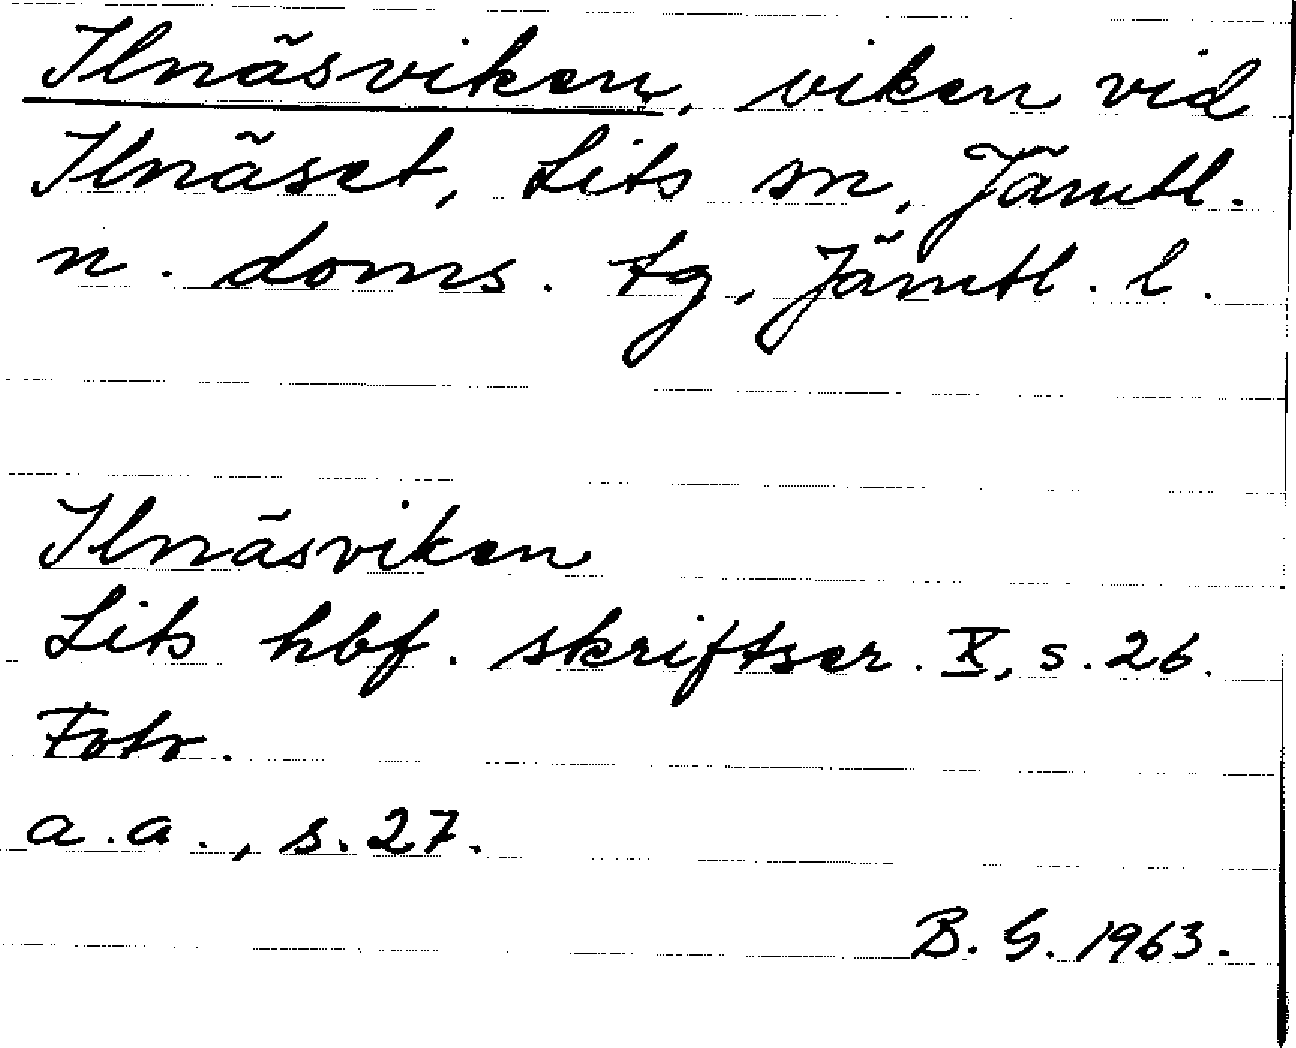 Ilnäsviken, viken vid
Ilnäset, Lits sn, Jämtl.
n. doms. tg, Jämtl. l.
Ilnäsviken
Lits hbf. skriftser. X, s. 26.
Foto.
a.a., s. 27.
B. G. 1963.